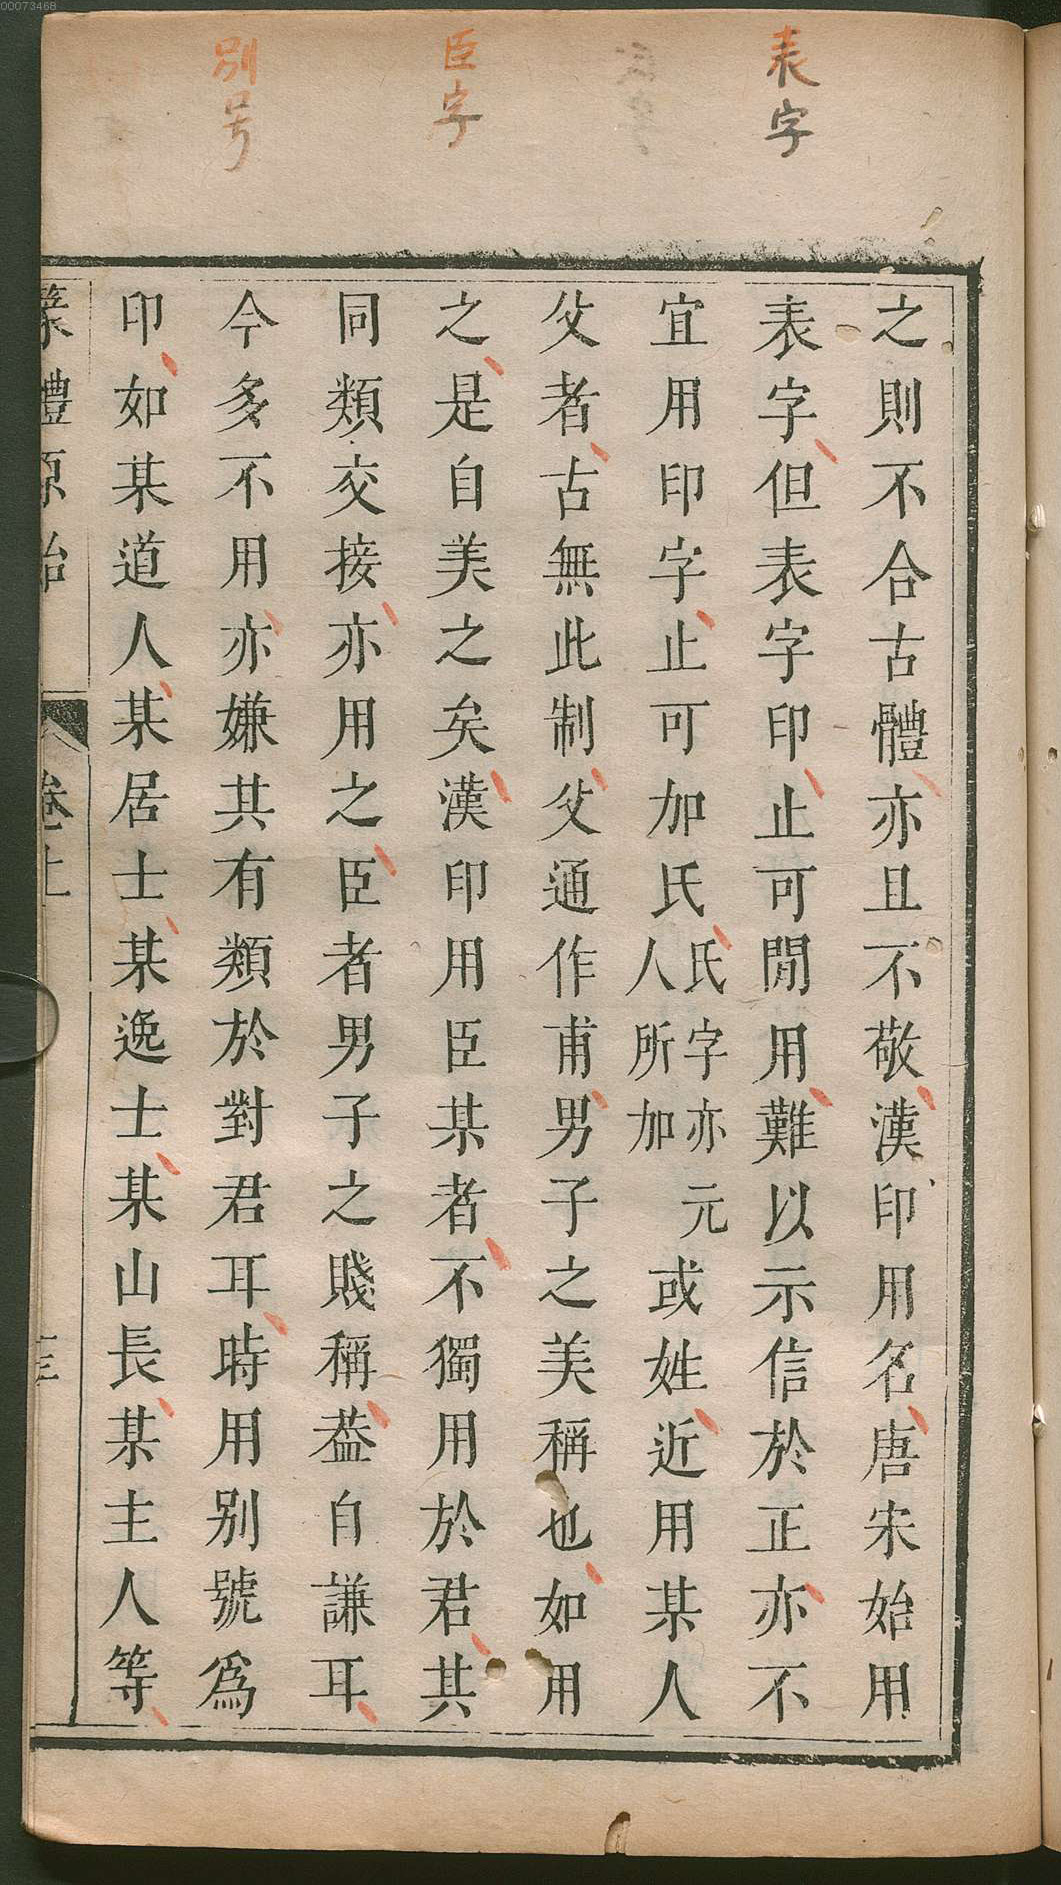 00073468
表字
臣字
別号
之則不合古體亦且不敬漢印用名唐宋始用
表字但表字印止可閒用難以示信於正亦不
宜用印字止可加氏氏字亦元人所加或姓近用某人
父者古無此制父通作甫男子之美稱也如用
之是自美之矣漢印用臣某者不獨用於君其
同類交接亦用之臣者男子之賤稱葢自謙耳
今多不用亦嫌其有類於對君耳時用別號為
印如某道人某居士某逸士某山長某主人等
篆體原始 卷上